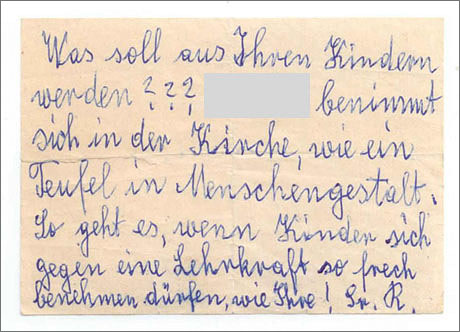 Was soll aus Ihren Kindern
werden ? ? ? benimmt
sich in der Kirche, wie ein
Teufel in Menschengestalt.
So geht es, wenn Kinder sich
gegen eine Lehrkraft so frech
benehmen dürfen, wie Ihre! Sr. R.